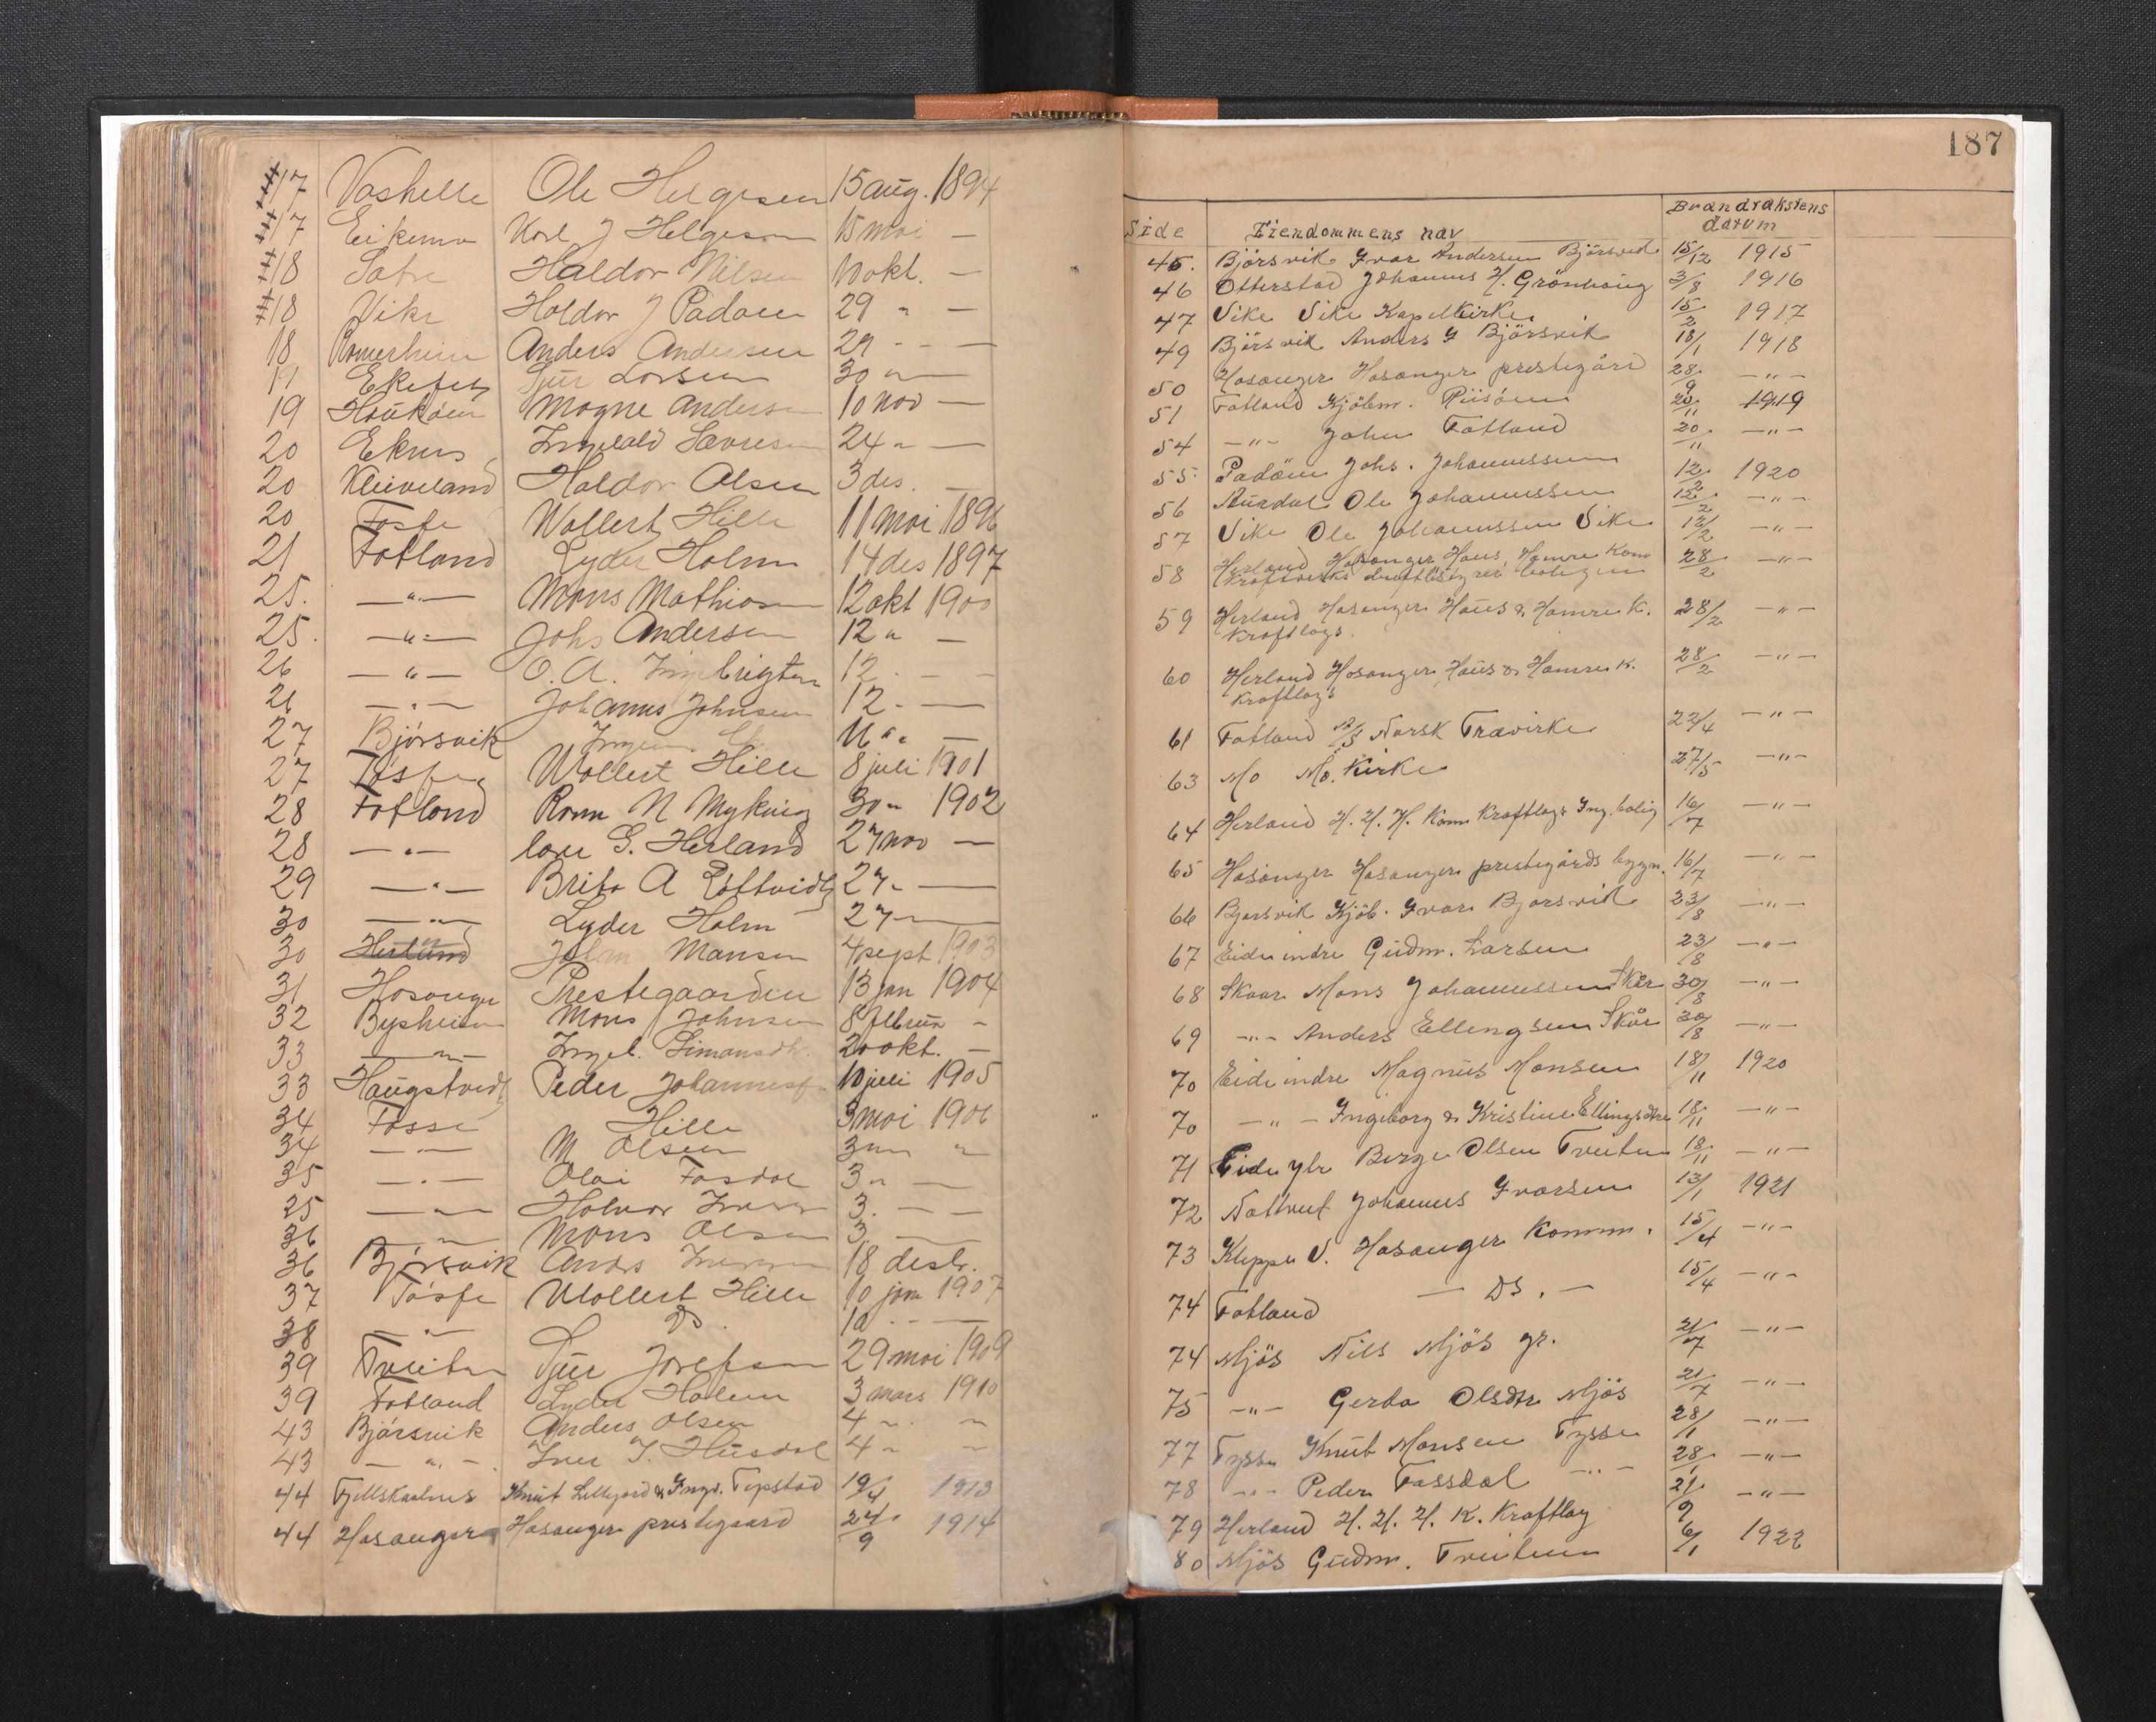 17 Vashelle Ole Helgesen 15 aug. 1894
17 Eikemo Karl J Helgesen 15 mai —
18 Satre Haldor Nilsen 10 okt. —
18 Vike Haldor J Padøen 29 " —
18 Romerheim Anders Andersen 29 - —
19 Sjur Larsen 30 " —
19 Haukåen Mogne Andersen 10 nov —
20 Eknes Ingvald Sævresen 24 " —
20 Kleiveland Haldor Olsen 3 des. —
20 Fosse Wollert Hille 11 mai 1896
21 Fotland Lyder Holm 14 des 1897
25. —"— Mons Mathiasen 12 okt 1900
25. —"— Johs Andersen 12 " —
26 —"— O. A. Ingebrigtsen 12 - —
26 —"— Johannes Johnsen 12 - —
27 Bjørsvik 11 " —
27 Fosse Wollert Hille 8 juli 1901
28 Fotland N Myking 30 " 1902
28 —"— G. Herland 27 nov —
29 —"— Brita A 27 " —
30 —"— Lyder Holm 27 —
30 Herland John Mansen 4 sept 1903
31 Hosanger Prestegaarden 13 jan 1904
32 Bysheim Mons Johnsen 8 februar -
33 —"— Ingeb. Simonsdtr. 20 okt. —
33 Haugstvedt Peder Johannesen 10 juli 1905
34 Fosse Hille 3 mai 1906
34 —"— M Olsen 3 " "
35 —"— Olai Fosdal 3 " —
35 —"— Halvor 3 . —
36 —"— Mons Olsen 3 —
36 Bjørsvik 18 desbr.
37 Fosse Wollert Hille 10 jan 1907
38 —"— Do. 10 - —
39 Tveiten Sjur Josefsen 29 mai 1909
39 Fotland Lyder Holm 3 mars 1910
43 Bjørsvik Anders Olsen 4 " "
43 — " — Iver J. Husdal 4 " "
44 Fjellskaalnes Knut Lillejord & Ingv. Tepstad 19/4 1913
44 Hosanger Hosanger prestegaard 24/9 1914
187
Side Eiendommens nav Brandtakstens datum
45. Bjørsvik Ivar Andersen Bjørsvik 15/12 1915
46 Otterstad Johannes H. Grønhaug 3/8 1916
47 Vike Vike Kapellkirke 15/2 1917
49 Bjørsvik Anders I Bjørsvik 18/1 1918
50 Hosanger Hosanger prestegård 28/9 —"—
51 Fotland Kjøbm. 20/11 1919
54 —"— John Fotland 20/11 —"—
55 Padøen Johs. Johannessen 12/2 1920
56 Aurdal Ole Johannessen 12/2 —"—
57 Vike Ole Johannessen Vike 12/2 —"—
58 Herland Hosanger Haus, Hamre Kom 28/2 —"—
Kraftverks driftbestyrer boligen
59 Herland Hosanger Haus & Hamre K. 28/2 —"—
Kraftlags.
60 Herland Hosanger Haus & Hamre K. 28/2 —"—
Kraftlags
61 Fotland A/S Norsk Trævirke 22/4 —"—
63 Mo Mo Kirke 27/5 —"—
64 Herland H. H. H. Kom Kraftlags Ing. bolig 16/7 —"—
65 Hosanger Hosanger prestegårds bygn. 16/7 —"—
66 Bjørsvik Kjøb. Ivar Bjørsvik 23/8 —"—
67 Eide indre Gudm. Larsen 23/8 —"—
68 Skaar Mons Johannessen Skår 30/8 —"—
69 —"— Anders Ellingsen Skår 30/8 —"—
70 Eide indre Magnus Monsen 18/11 1920
70 —"— Ingeborg & Kristine Ellingsdtre 18/11 —"—
71 Eide ytr Berge Olsen Tveiten 18/11 —"—
72 Nottveit Johannes Ivarsen 13/1 1921
73 Kleppe V. Hosanger Komm. 15/4 —"—
74 Fotland — Do. — 15/4 —"—
74 Mjøs Nils Mjøs gr. 21/7 —"—
75 —"— Gerda Olsdtr Mjøs 21/7 —"—
77 Tysse Knut Monsen Tysse 28/1 —"—
78 —"— Peder Fossdal —"— 28/1 —"—
79 Herland H. H. H. K. Kraftlag 21/9 —"—
80 Mjøs Gudm. Tveiten 6/1 1922